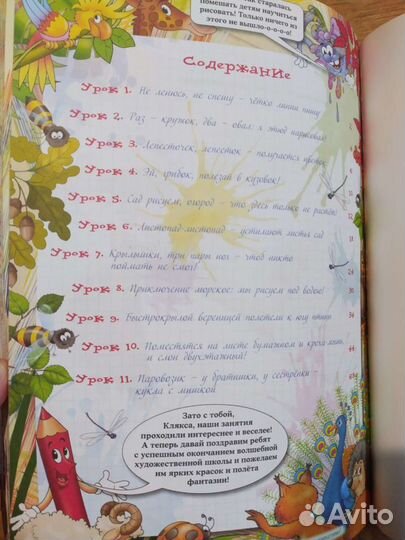 как старалась
помешать детям научиться
рисовать! Только ничего из
этого не вышло-о-о-о-о!
Содержание
Урок 1. Не ленюсь, не спешу - чётко линии пишу
Урок 2. Раз - кружок, два - овал: я этюд нарисовал!
Урок 3. Лепесточек, лепесток - получается цветок
Урок 4. Эй, грибок, полезай в кузовок!
Урок 5. Сад рисуем, огород - что здесь только не растёт!
Урок 6. Листопад-листопад - устилают листья сад
Урок 7. Крылышки, три пары ног - чтоб никто
поймать не смог!
Урок 8. Приключение морское: мы рисуем под водою!
Урок 9. Быстрокрылой вереницей полетели к югу птицы
Урок 10. Поместятся на листе бумажном и кроха-мышь,
и слон двухэтажный!
Урок 11. Паровозик - у братишки, у сестрёнки -
кукла с мишкой
6
12
24
30
36
44
Зато с тобой,
Клякса, наши занятия
проходили интереснее и веселее!
А теперь давай поздравим ребят
с успешным окончанием волшебной
художественной школы и пожелаем
им ярких красок и полёта
фантазии!
Avito